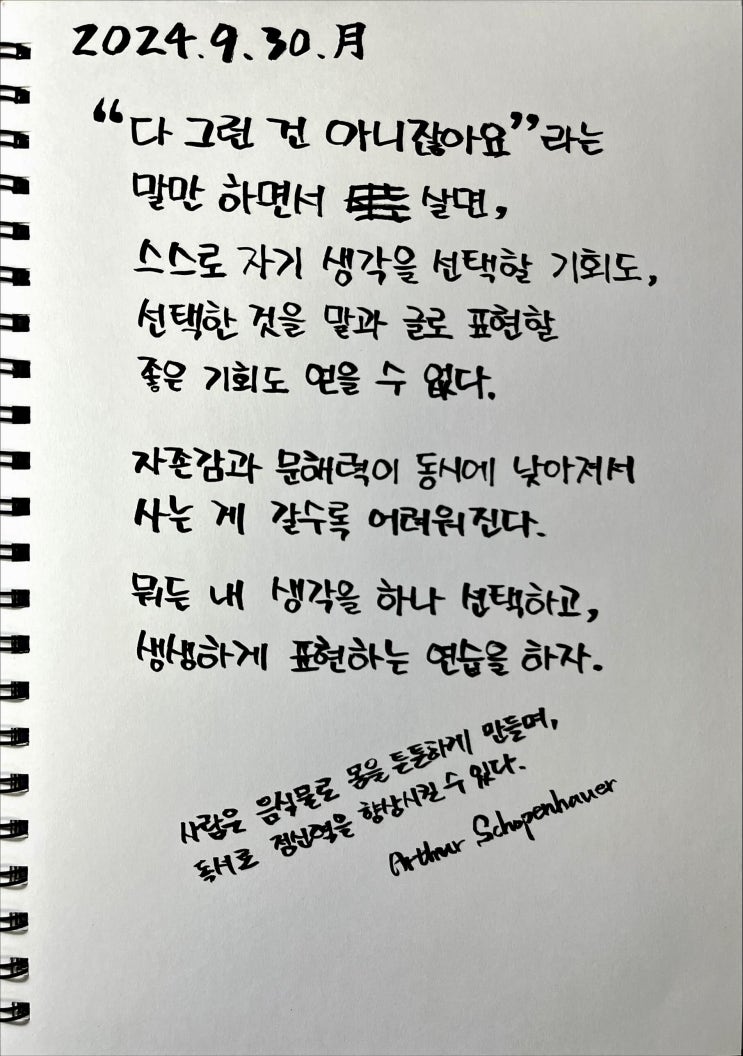 2024.9.30.月
“다 그런 건 아니잖아요”라는
말만 하면서 살면,
스스로 자기 생각을 선택할 기회도,
선택한 것을 말과 글로 표현할
좋은 기회도 얻을 수 없다.
자존감과 문해력이 동시에 낮아져서
사는 게 갈수록 어려워진다.
뭐든 내 생각을 하나 선택하고,
생생하게 표현하는 연습을 하자.
사람은 음식물로 몸을 튼튼하게 만들며,
독서로 정신력을 향상시킬 수 있다.
Arthur Schopenhauer